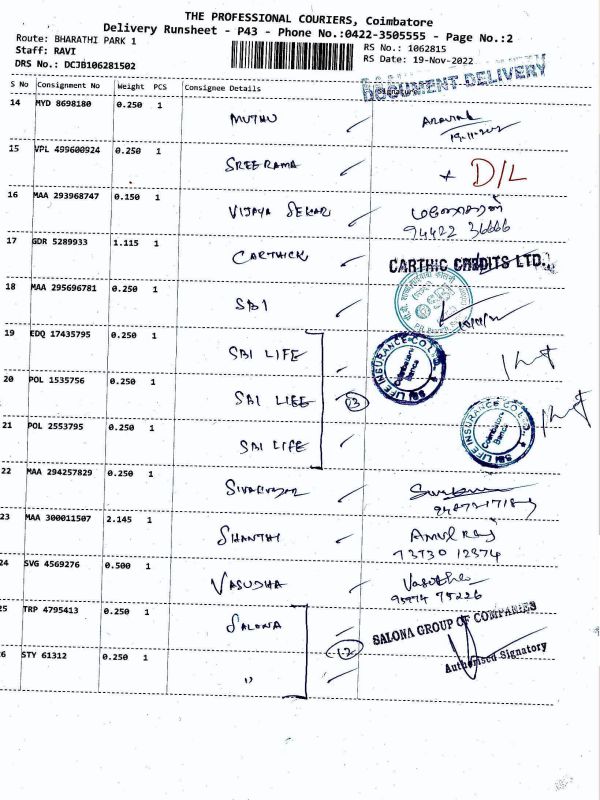 THE PROFESSIONAL COURIERS, Coimbatore
Delivery Runsheet - P43 - Phone No.:0422-3505555 - Page No.:2
Route: BHARATHI PARK 1 RS No.: 1062815
Staff: RAVI RS Date: 19-Nov-2022
DRS No.: DCJB106281502 DOCUMENT DELIVERY
S No Consignment No Weight PCS Consignee Details Signature
14 MYD 8698180 0.250 1 MUTHU Aravind
15 VPL 499600924 0.250 1 SREE RAMA D/L
16 MAA 293968747 0.150 1 VIJAYA SEKAR
94422 36666
17 GDR 5289933 1.115 1 CARTHICK CARTHIC CREDITS LTD.
18 MAA 295696781 0.250 1 SBI SBI
19 EDQ 17435795 0.250 1 SBI LIFE SBI LIFE INSURANCE CO LTD Coimbatore
20 POL 1535756 0.250 1 SBI LIFE 3
21 POL 2553795 0.250 1 SBI LIFE SBI LIFE INSURANCE CO LTD Coimbatore
22 MAA 294257829 0.250 1
23 MAA 300011507 2.145 1 SHANTHI Amul Raj
73730 12374
24 SVG 4569276 0.500 1 VASUDHA Vasudha
25 TRP 4795413 0.250 1 SALONA SALONA GROUP OF COMPANIES
26 STY 61312 0.250 1 " Authorised Signatory